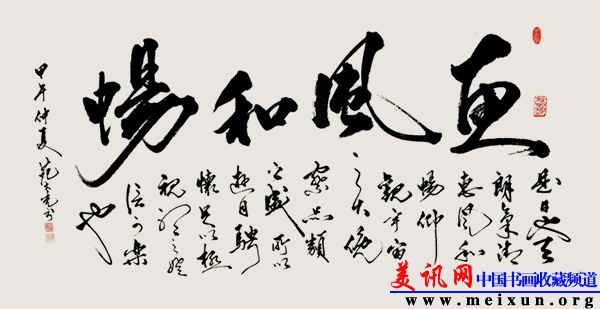 惠風和暢
是日也天
朗氣清
惠風和
暢仰
觀宇宙
之大俯
察品類
之盛所以
遊目騁
懷足以極
視聽之娛
信可樂
也
甲午仲夏范
美讯网 中国书画收藏频道
www.meixun.org